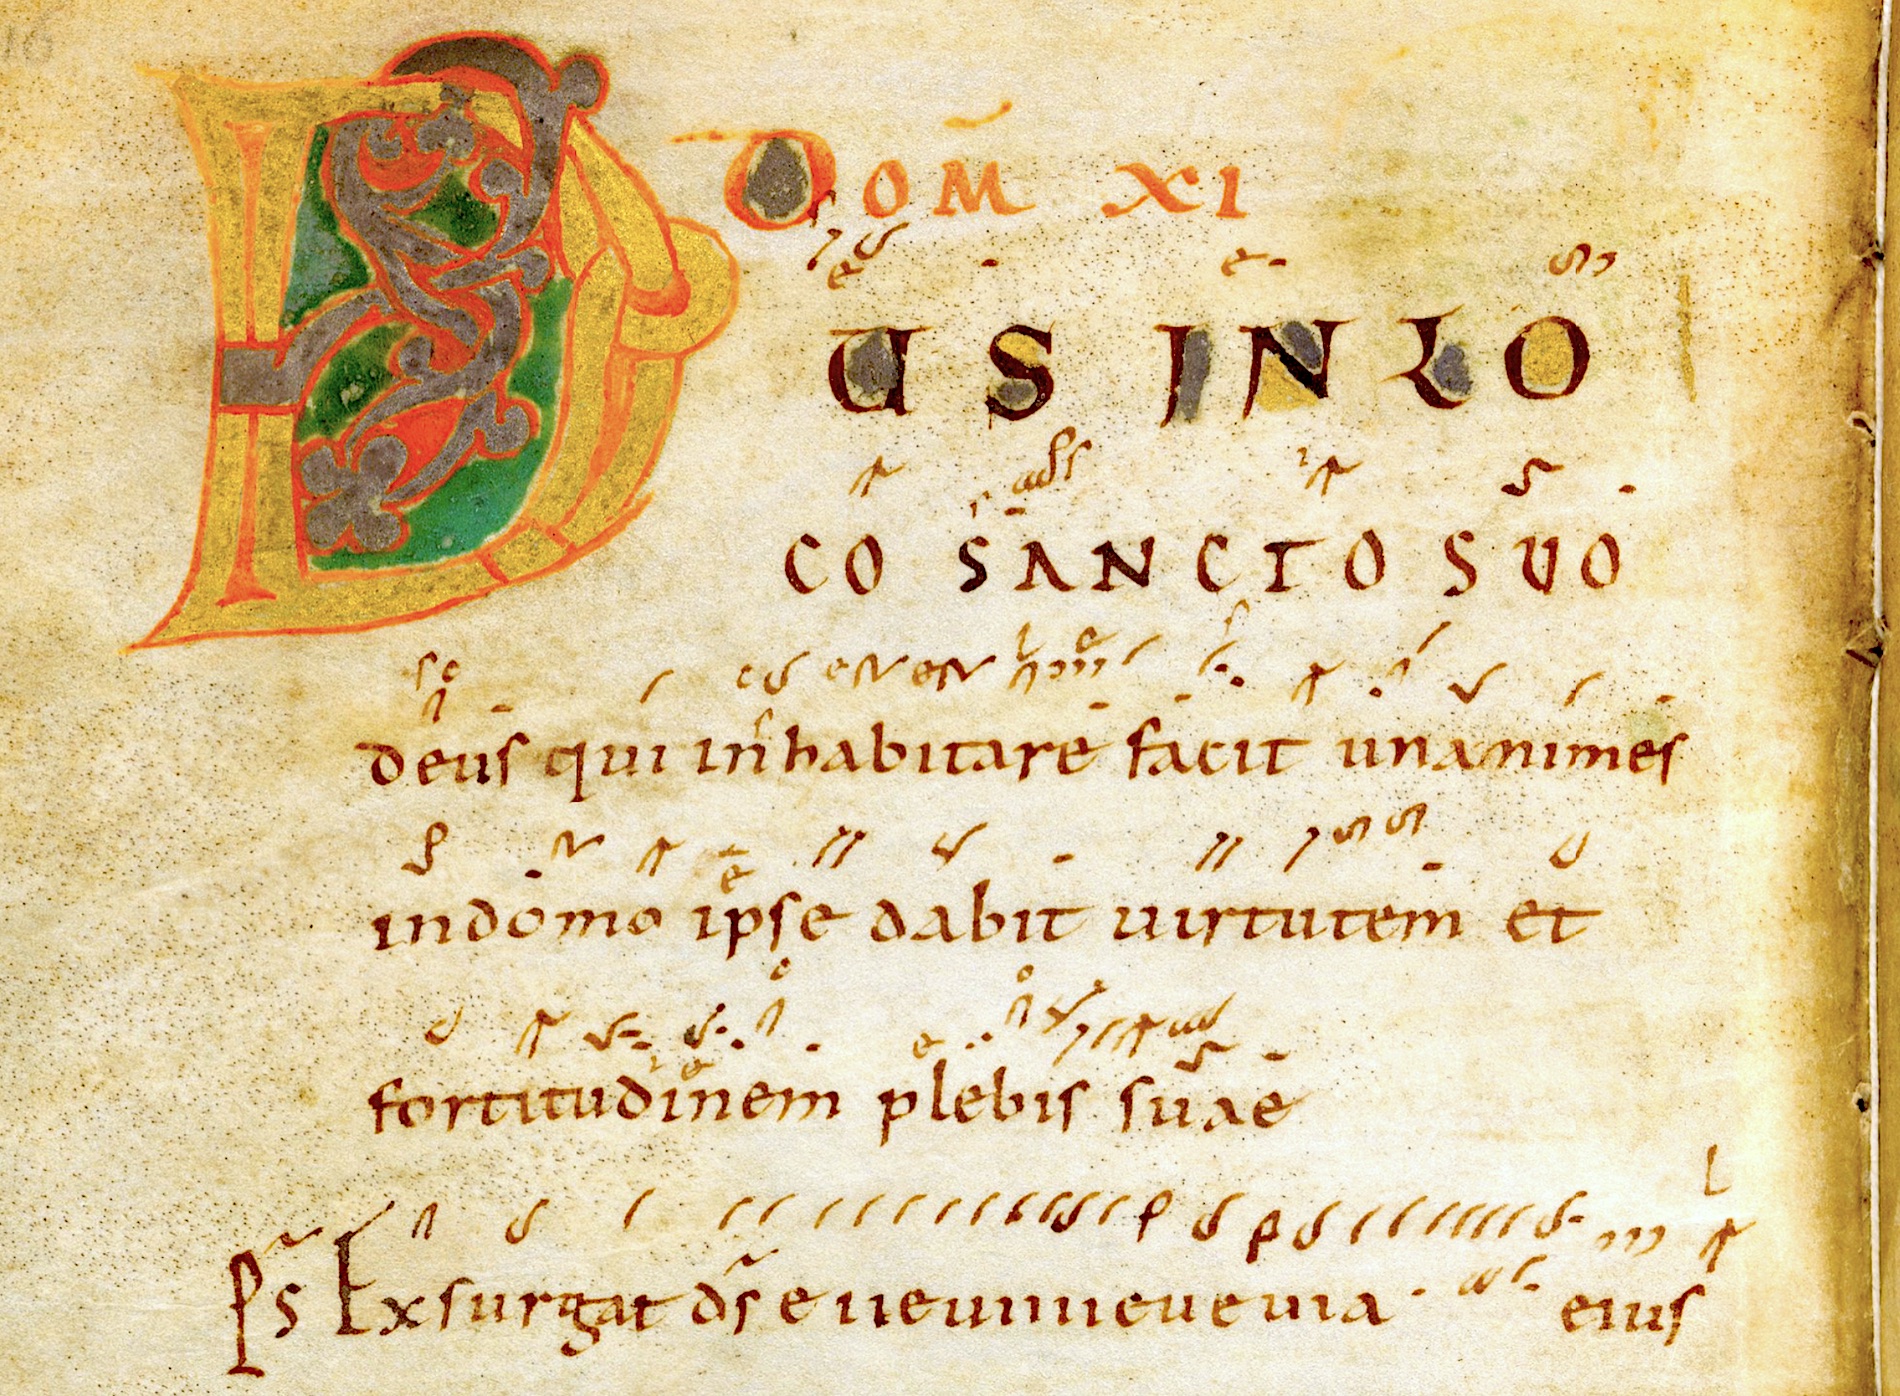 DOM̄ XI
D US IN LO
CO SANCTO SUO
deus qui inhabitare facit unanimes
in domo ipse dabit uirtutem et
fortitudinem plebis suae
Ps̄ Exsurgat ds̄ e u e u i u i e u e u i a eius